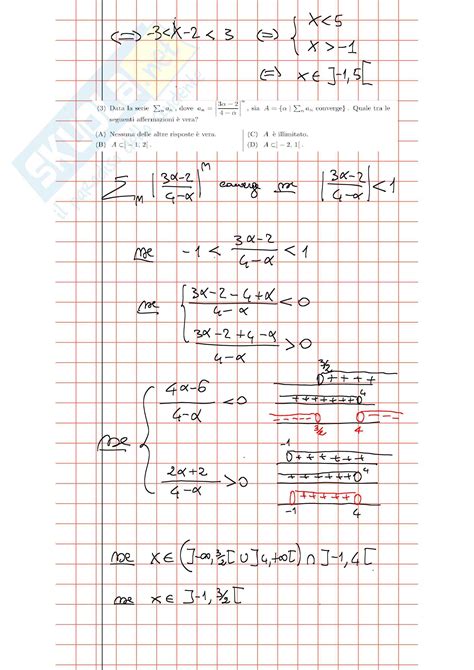 (⇔) -3 < x-2 < 3 (⇔) { x < 5
x > -1
(⇔) x ∈ ]-1,5[
(3) Data la serie ∑ₙ aₙ, dove aₙ = |3α − 2 / 4 − α|ⁿ, sia A = {α | ∑ₙ aₙ converge}. Quale tra le
seguenti affermazioni è vera?
(A) Nessuna delle altre risposte è vera. (C) A è illimitato.
(B) A ⊂] − 1, 2[. (D) A ⊂] − 2, 1[.
∑ₙ |3α-2 / 4-α|ⁿ converge se |3α-2 / 4-α| < 1
se -1 < 3α-2 / 4-α < 1
se { 3α-2-4+α / 4-α < 0
3α-2+4-α / 4-α > 0
3/2
++++
se { 4α-6 / 4-α < 0 +++++++ 4
3/2 4
-1
+++++++
2α+2 / 4-α > 0 +++++++ 4
+++++
-1 4
se x ∈ (]-∞, 3/2[ ∪ ]4, +∞[) ∩ ]-1, 4[
se x ∈ ]-1, 3/2[